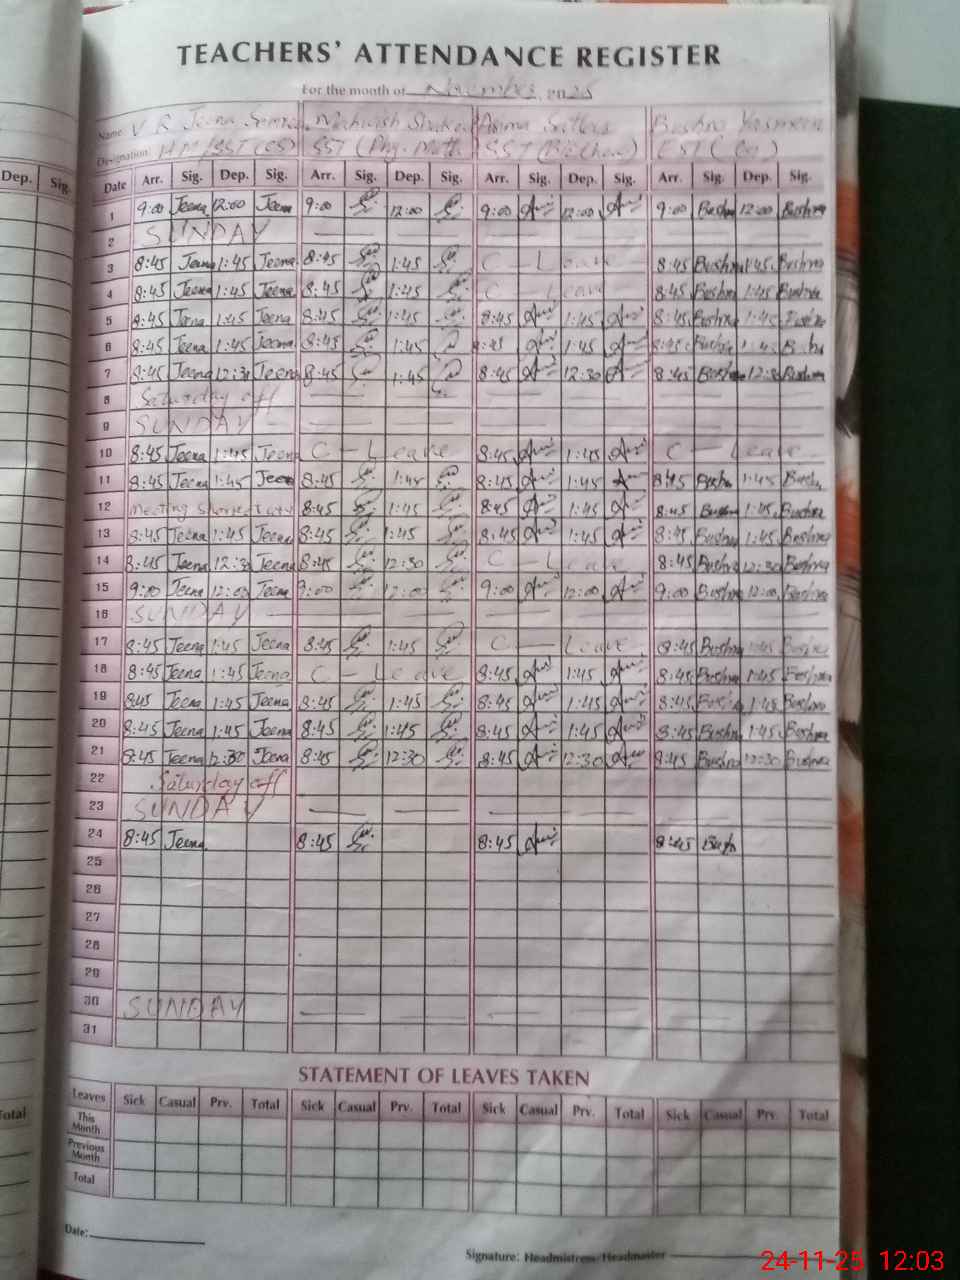 TEACHERS' ATTENDANCE REGISTER
For the month of November 2025
Name: V R Jeena Mehwish Asma Bushra Yasmeen
Designation: HM/SST (CS) SST (Phy. Math) SST (Bio Chem) EST
Dep. Sig. Date Arr. Sig. Dep. Sig. Arr. Sig. Dep. Sig. Arr. Sig. Dep. Sig. Arr. Sig. Dep. Sig.
1 9:00 Jeena 12:00 Jeena 9:00 12:00 9:00 12:00 9:00 Bushra 12:00 Bushra
2 SUNDAY
3 8:45 Jeena 1:45 Jeena 8:45 1:45 C - Leave 8:45 Bushra 1:45 Bushra
4 8:45 Jeena 1:45 Jeena 8:45 1:45 C - Leave 8:45 Bushra 1:45 Bushra
5 8:45 Jeena 1:45 Jeena 8:45 1:45 8:45 1:45 8:45 Bushra 1:45 Bushra
6 8:45 Jeena 1:45 Jeena 8:45 1:45 8:45 1:45 8:45 Bushra 1:45 Bushra
7 8:45 Jeena 12:30 Jeena 8:45 1:45 8:45 12:30 8:45 Bushra 12:30 Bushra
8 Saturday off
9 SUNDAY
10 8:45 Jeena 1:45 Jeena C - Leave 8:45 1:45 C - Leave
11 8:45 Jeena 1:45 Jeena 8:45 1:45 8:45 1:45 8:45 Bushra 1:45 Bushra
12 Meeting 8:45 1:45 8:45 1:45 8:45 Bushra 1:45 Bushra
13 8:45 Jeena 1:45 Jeena 8:45 1:45 8:45 1:45 8:45 Bushra 1:45 Bushra
14 8:45 Jeena 12:30 Jeena 8:45 12:30 C - Leave 8:45 Bushra 12:30 Bushra
15 9:00 Jeena 12:00 Jeena 9:00 12:00 9:00 12:00 9:00 Bushra 12:00 Bushra
16 SUNDAY
17 8:45 Jeena 1:45 Jeena 8:45 1:45 C - Leave 8:45 Bushra 1:45 Bushra
18 8:45 Jeena 1:45 Jeena C - Leave 8:45 1:45 8:45 Bushra 1:45 Bushra
19 8:45 Jeena 1:45 Jeena 8:45 1:45 8:45 1:45 8:45 Bushra 1:45 Bushra
20 8:45 Jeena 1:45 Jeena 8:45 1:45 8:45 1:45 8:45 Bushra 1:45 Bushra
21 8:45 Jeena 12:30 Jeena 8:45 12:30 8:45 12:30 8:45 Bushra 12:30 Bushra
22 Saturday off
23 SUNDAY
24 8:45 Jeena 8:45 8:45 8:45 Bush
25
26
27
28
29
30 SUNDAY
31
STATEMENT OF LEAVES TAKEN
Leaves Sick Casual Prv. Total Sick Casual Prv. Total Sick Casual Prv. Total Sick Casual Prv. Total
This Month
Previous Month
Total
Date:
Signature: Headmistress/Headmaster
24-11-25 12:03